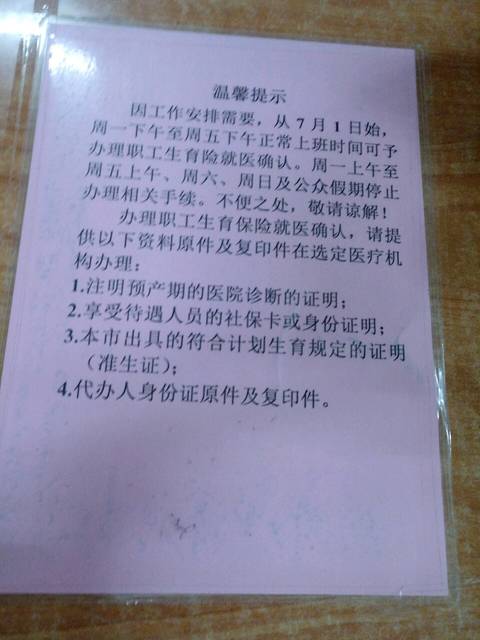 温馨提示
因工作安排需要，从7月1日始，
周一下午至周五下午正常上班时间可予
办理职工生育险就医确认。周一上午至
周五上午、周六、周日及公众假期停止
办理相关手续。不便之处，敬请谅解！
办理职工生育保险就医确认，请提
供以下资料原件及复印件在选定医疗机
构办理：
1.注明预产期的医院诊断的证明；
2.享受待遇人员的社保卡或身份证明；
3.本市出具的符合计划生育规定的证明
（准生证）；
4.代办人身份证原件及复印件。